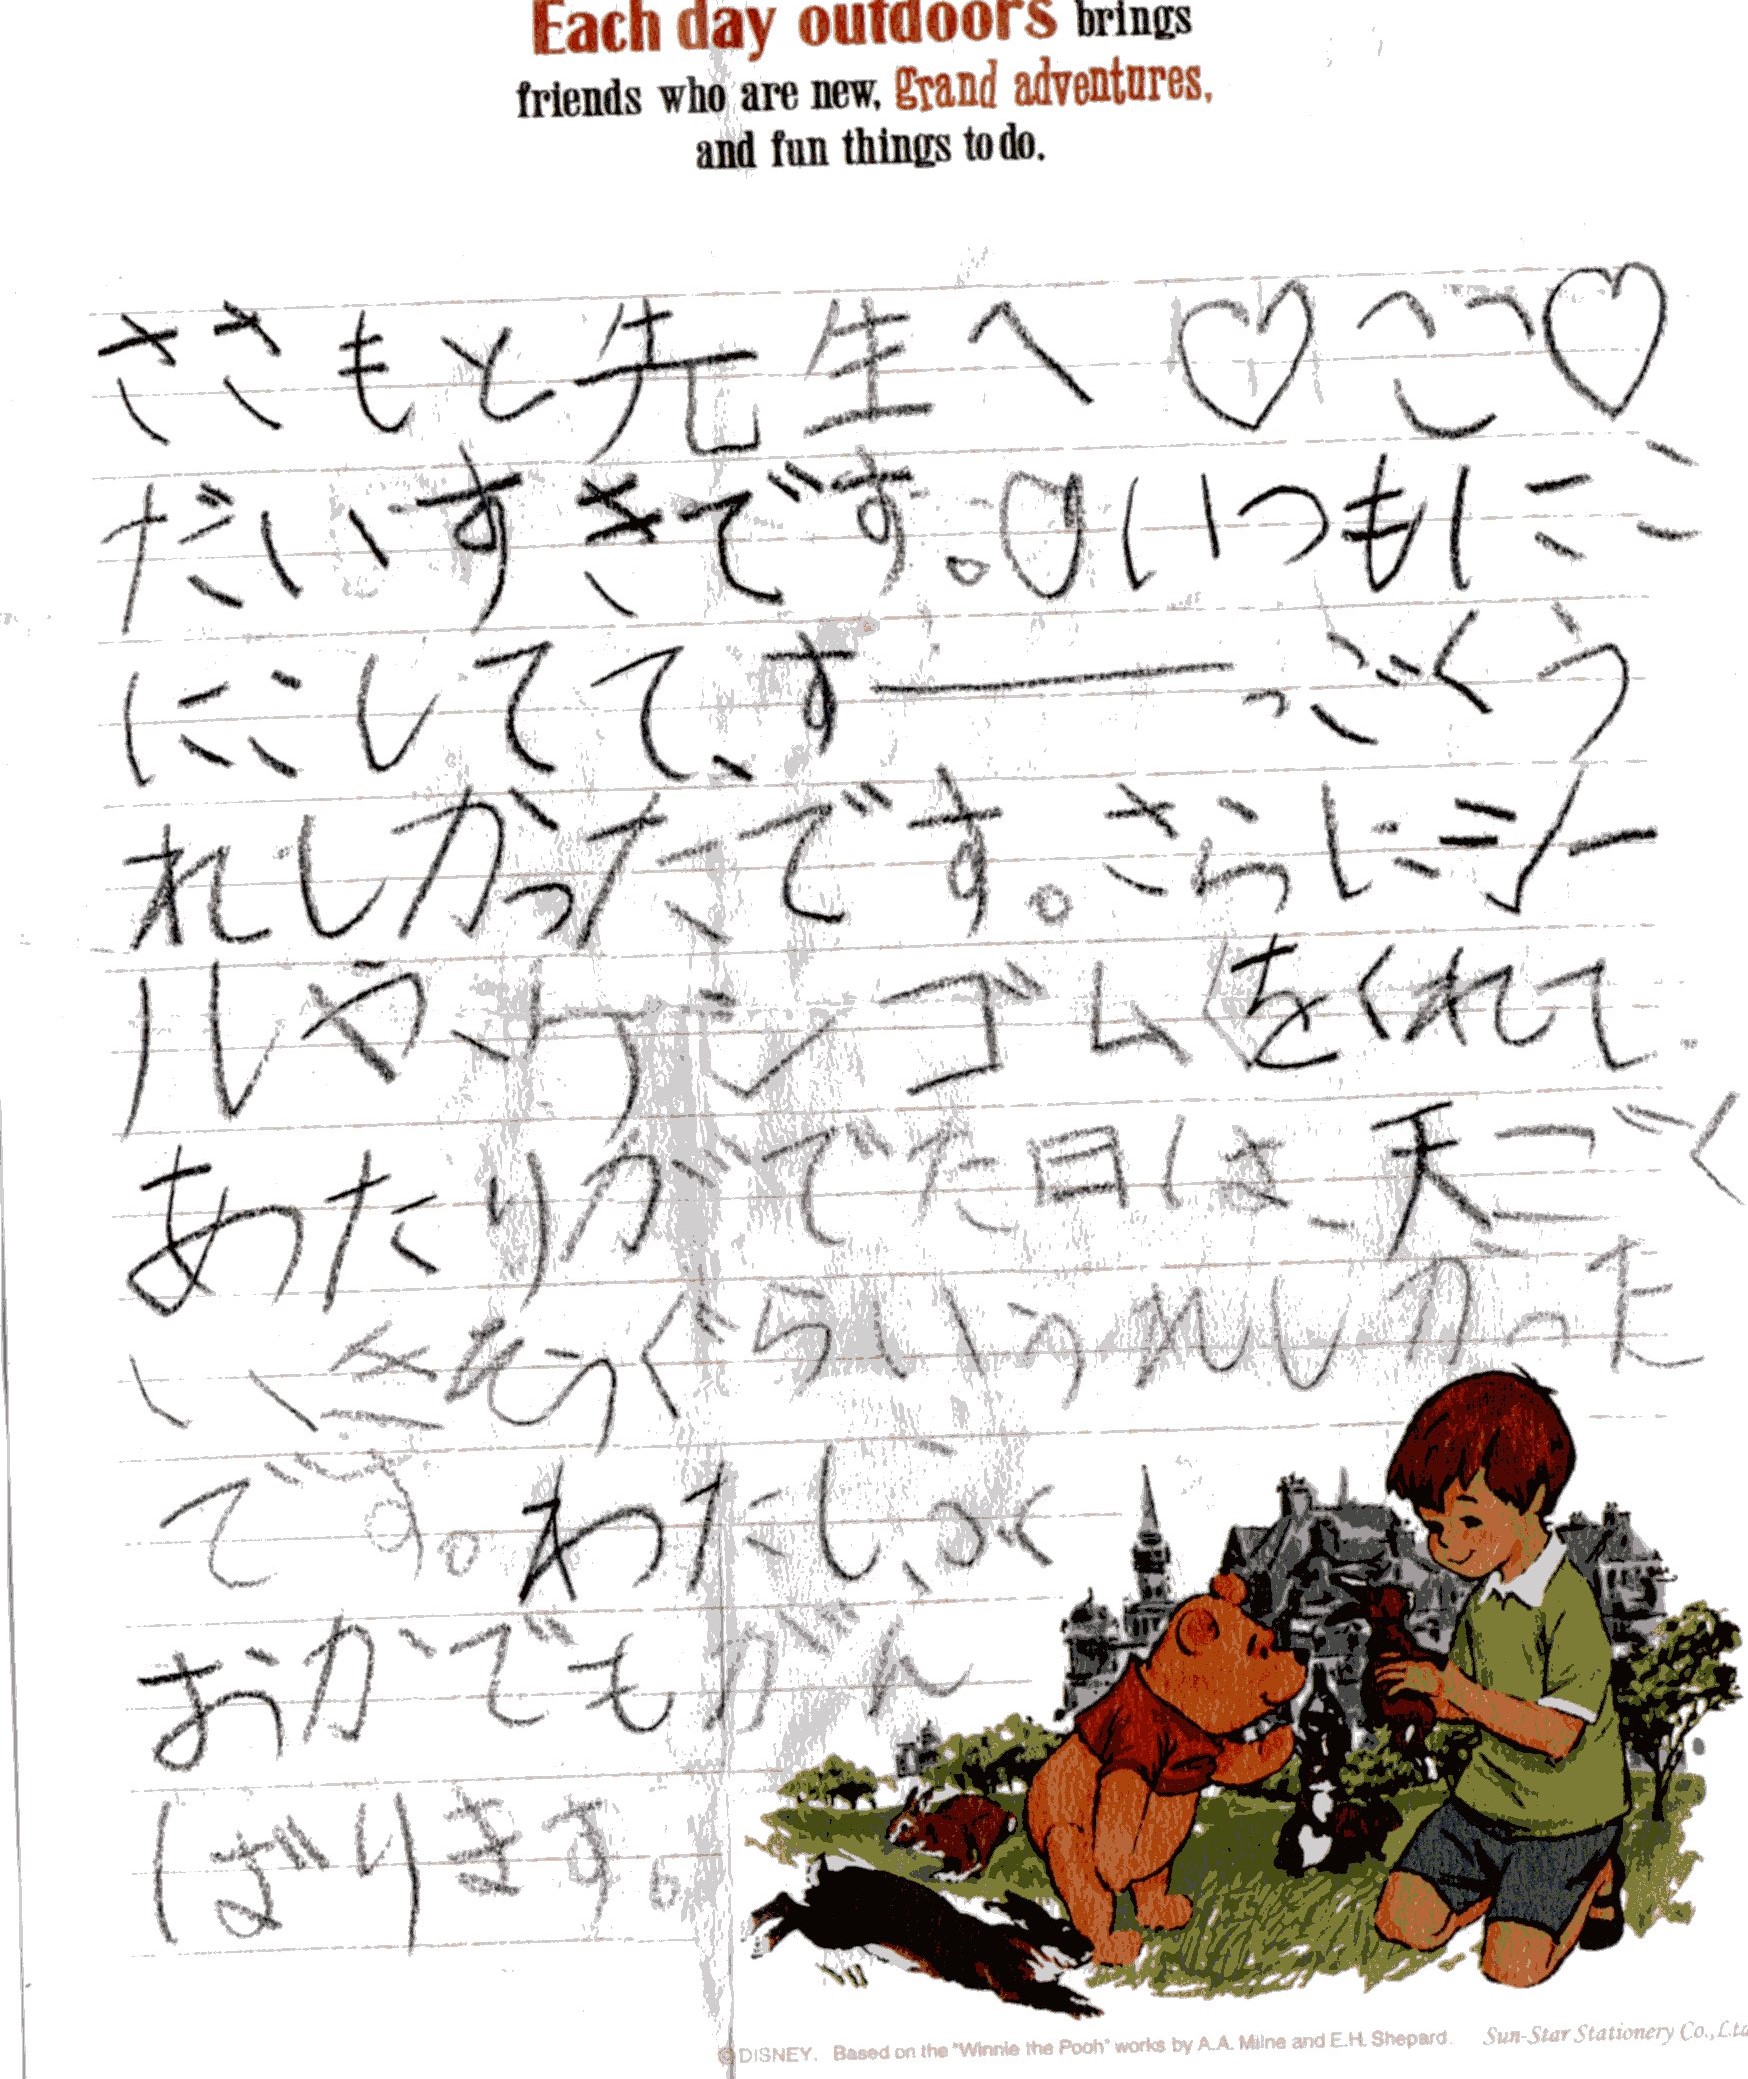 Each day outdoors brings
friends who are new, grand adventures,
and fun things to do.
ささもと先生へ♡^^♡
だいすきです。いつもにこ
にこしてて、すーーっごくう
れしかったです。さらにシー
ルやケシゴムをくれて
あたりがでた日は、天ごく
いきそうぐらいうれしかった
です。わたし、ふく
おかでもがん
ばります。
©DISNEY. Based on the "Winnie the Pooh" works by A.A. Milne and E.H. Shepard. Sun-Star Stationery Co.,Ltd